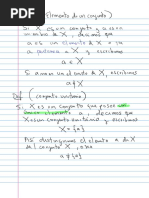 (Elemento de un conjunto)
Si X es un conjunto y a es un
de X, decimos que
a es un elemento de X o que
a pertenece a X y escribimos
a ∈ X
Si a no es un elemento de X, escribimos
a ∉ X
Def (conjunto unitario)
Si X es un conjunto que posee un
único elemento a, decimos que
X es conjunto unitario y escribimos
X = {a}
Así distinguimos el elemento a de X
del conjunto X, o sea
a ≠ {a}